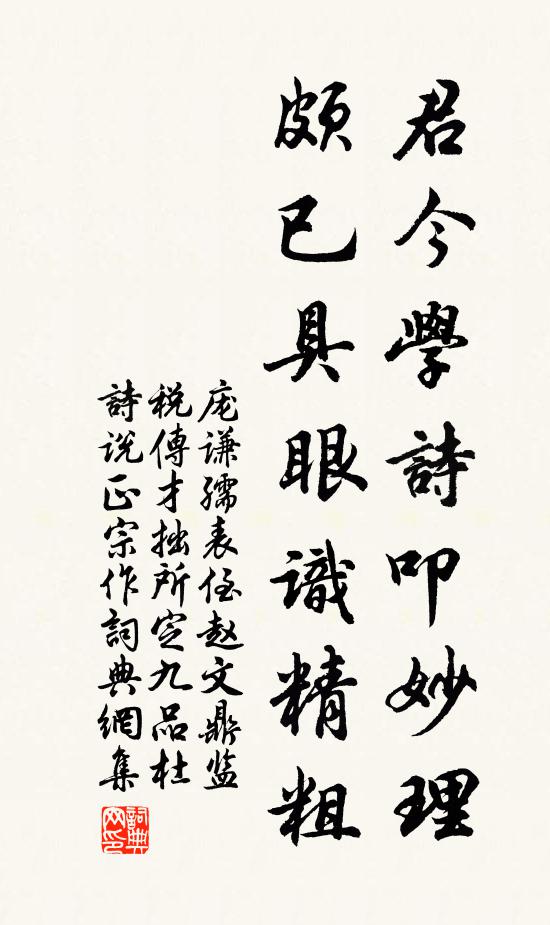 君今學詩叩妙理
頗已具眼識精粗
庞謙孺表侄赵文鼎监
税傳才拙所定九品杜
詩说正宗作詞典網集
詞典网印